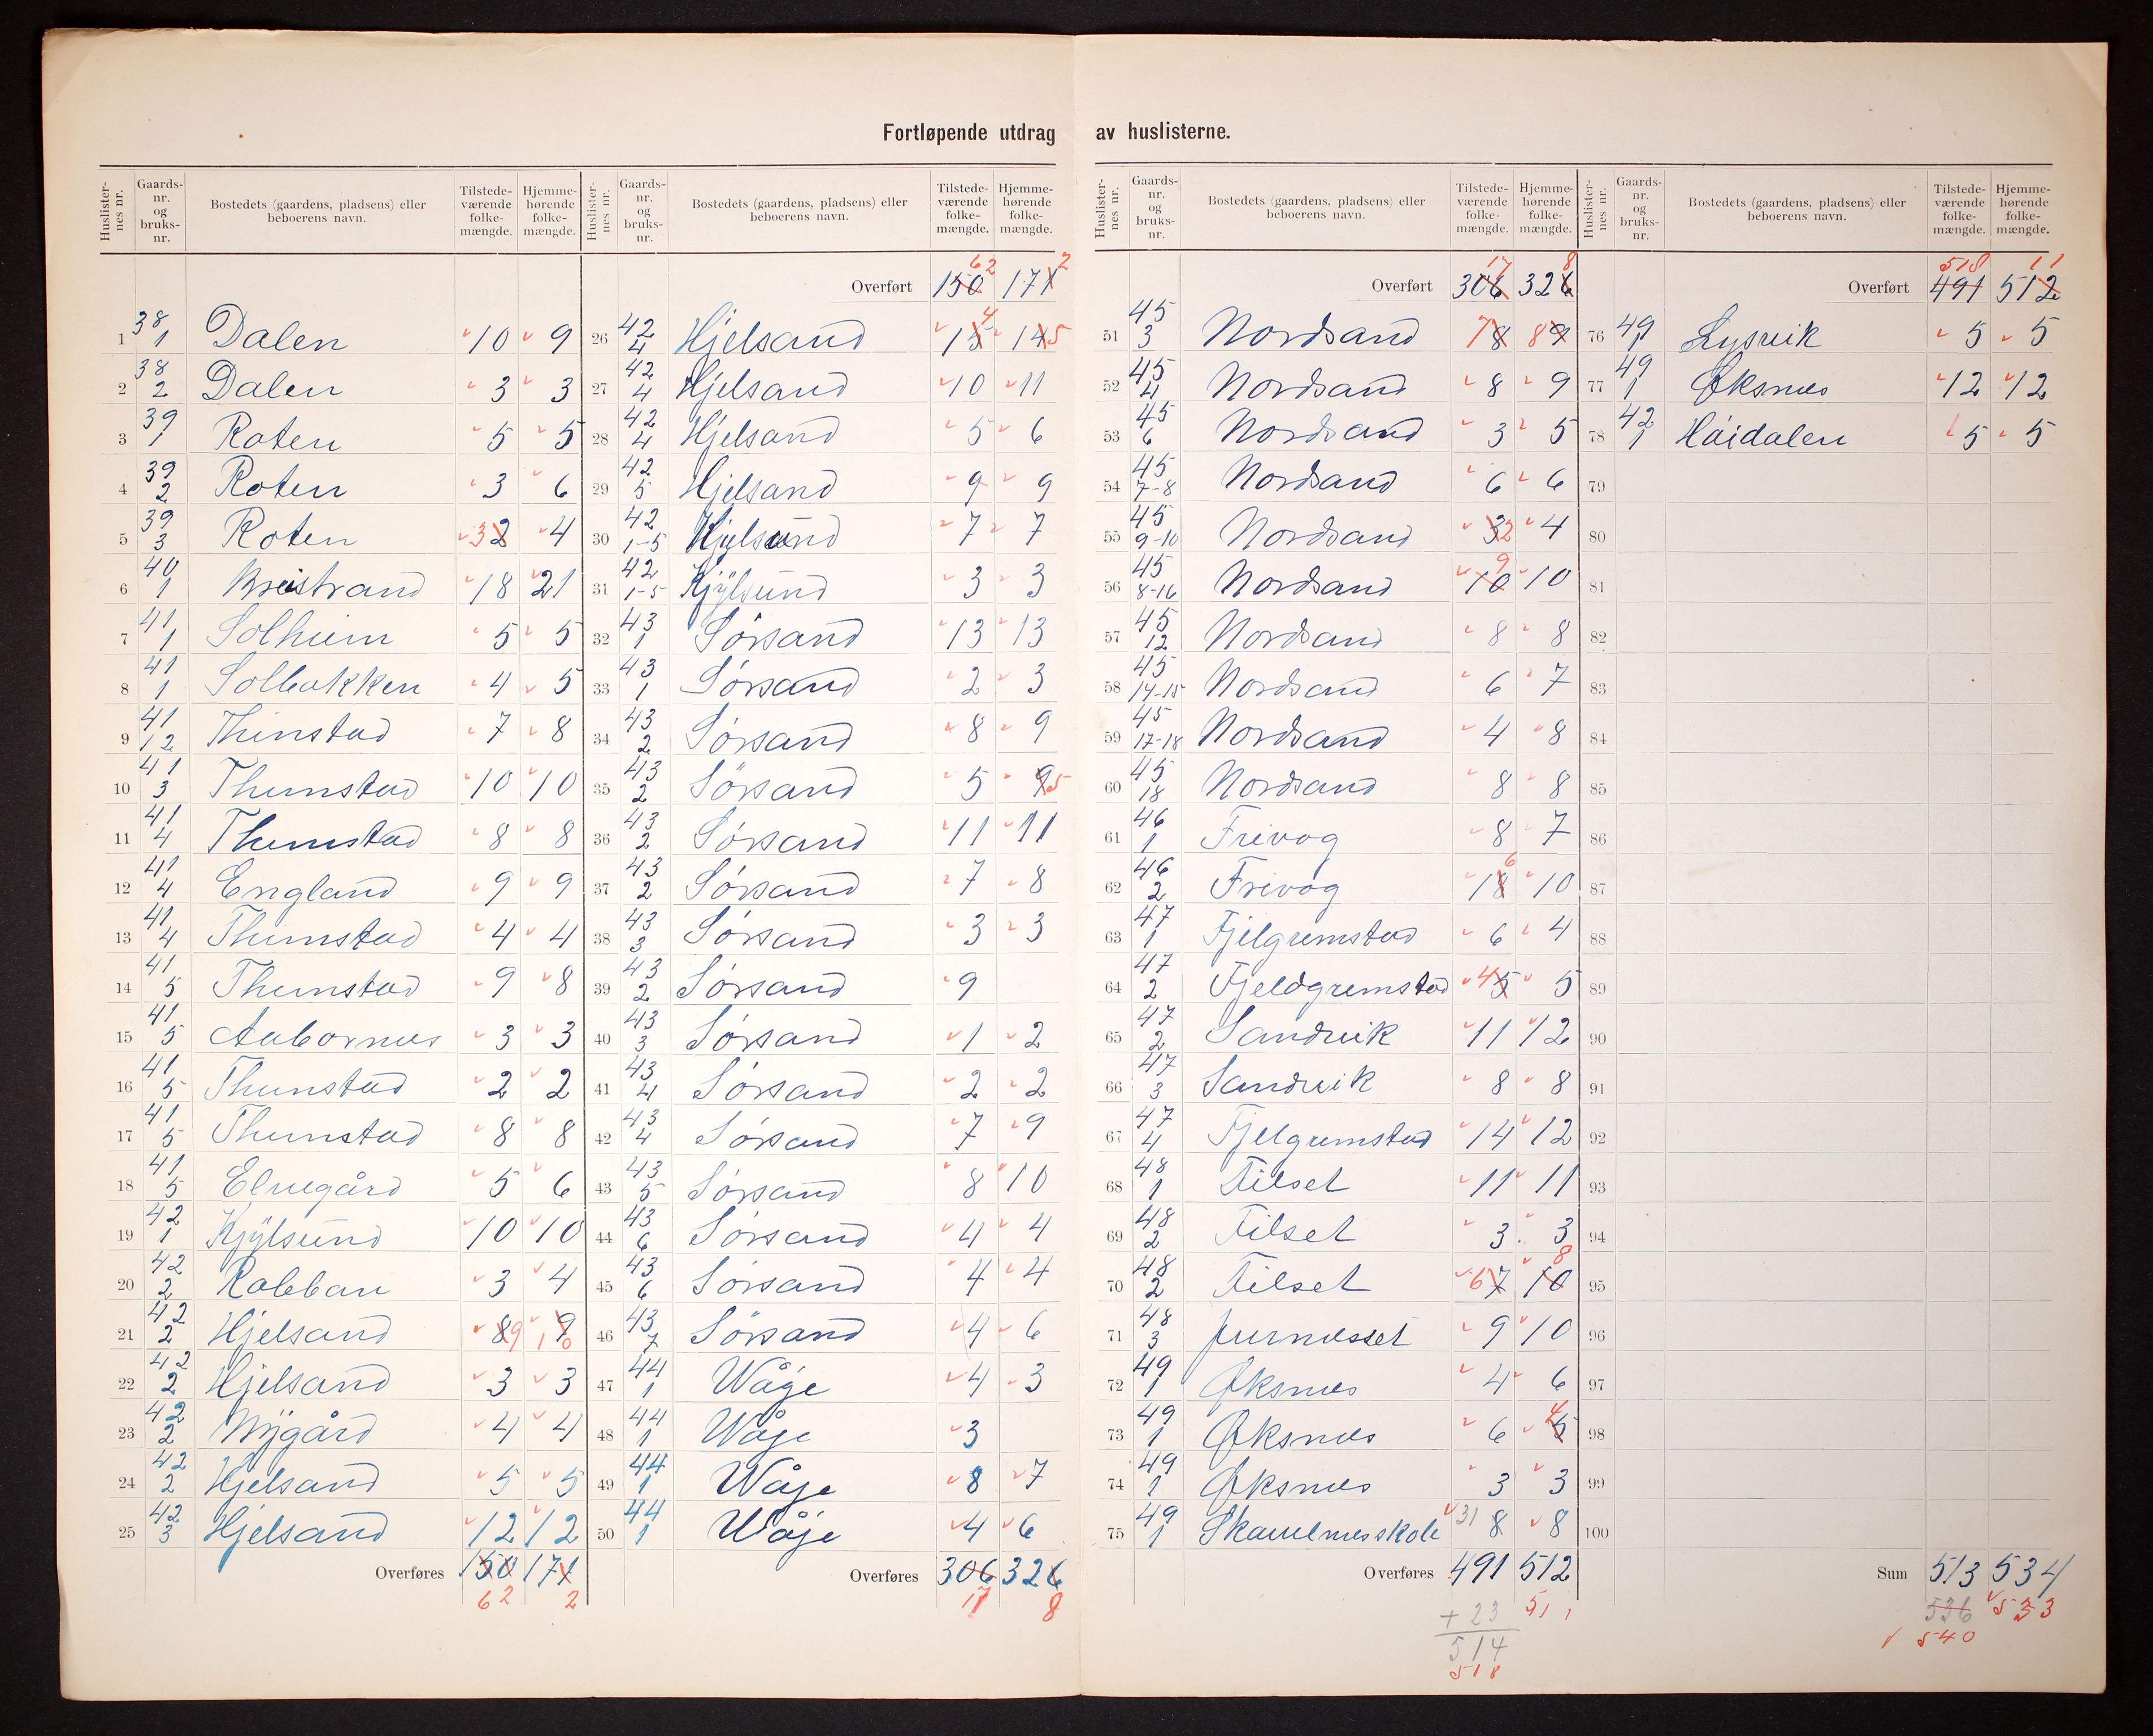 Fortløpende utdrag av huslisterne.
Huslister-nes nr. Gaards-nr. og bruks-nr. Bostedets (gaardens, pladsens) eller beboerens navn. Tilstede-værende folke-mængde. Hjemme-hørende folke-mængde.
1 38 1 Dalen 10 9
2 38 2 Dalen 3 3
3 39 1 Roten 5 5
4 39 2 Roten 3 6
5 39 3 Roten 3 2 4
6 40 1 Breistrand 18 21
7 41 1 Solheim 5 5
8 41 1 Solbakken 4 5
9 41 12 Thinstad 7 8
10 41 3 Thunstad 10 10
11 41 4 Thunstad 8 8
12 41 4 England 9 9
13 41 4 Thunstad 4 4
14 41 5 Thunstad 9 8
15 41 5 Aabornes 3 3
16 41 5 Thunstad 2 2
17 41 5 Thunstad 8 8
18 41 5 Elvegård 5 6
19 42 1 Kjylsund 10 10
20 42 2 Rabban 3 4
21 42 2 Hjelsand 8 9 9 10
22 42 2 Hjelsand 3 3
23 42 2 Nygård 4 4
24 42 2 Hjelsand 5 5
25 42 3 Hjelsand 12 12
Overføres 150 171
62 2
Huslister-nes nr. Gaards-nr. og bruks-nr. Bostedets (gaardens, pladsens) eller beboerens navn. Tilstede-værende folke-mængde. Hjemme-hørende folke-mængde.
62 2
Overført 150 171
26 42 4 Hjelsand 15 4 14 5
27 42 4 Hjelsand 10 11
28 42 4 Hjelsand 5 6
29 42 5 Hjelsand 9 9
30 42 1-5 Kjylsund 7 7
31 42 1-5 Kjylsund 3 3
32 43 1 Sørsand 13 13
33 43 1 Sørsand 2 3
34 43 2 Sørsand 8 9
35 43 2 Sørsand 5 9 5
36 43 2 Sørsand 11 11
37 43 2 Sørsand 7 8
38 43 3 Sørsand 3 3
39 43 2 Sørsand 9
40 43 3 Sørsand 1 2
41 43 4 Sørsand 2 2
42 43 4 Sørsand 7 9
43 43 5 Sørsand 8 10
44 43 6 Sørsand 4 4
45 43 6 Sørsand 4 4
46 43 7 Sørsand 4 6
47 44 1 Wåje 4 3
48 44 1 Wåje 3
49 44 1 Wåje 8 7
50 44 1 Wåje 4 6
Overføres 306 326
17 8
Huslister-nes nr. Gaards-nr. og bruks-nr. Bostedets (gaardens, pladsens) eller beboerens navn. Tilstede-værende folke-mængde. Hjemme-hørende folke-mængde.
17 8
Overført 306 326
51 45 3 Nordsand 7 8 8 9
52 45 4 Nordsand 8 9
53 45 6 Nordsand 3 5
54 45 7-8 Nordsand 6 6
55 45 9-10 Nordsand 3 2 4
56 45 8-16 Nordsand 10 9 10
57 45 12 Nordsand 8 8
58 45 14-15 Nordsand 6 7
59 45 17-18 Nordsand 4 8
60 45 18 Nordsand 8 8
61 46 1 Frivog 8 7
62 46 2 Frivog 18 6 10
63 47 1 Fjelgrumstad 6 4
64 47 2 Fjeldgremstad 4 5 5
65 47 2 Sandvik 11 12
66 47 3 Sandvik 8 8
67 47 4 Fjelgrumstad 14 12
68 48 1 Tilset 11 11
69 48 2 Tilset 3 3
70 48 2 Tilset 6 7 10 8
71 48 3 9 10
72 49 1 Øksnes 4 6
73 49 1 Øksnes 6 5 4
74 49 1 Øksnes 3 3
75 49 1 Skavelnesskole 31 8 8
Overføres 491 512
+ 23 511
514
518
Huslister-nes nr. Gaards-nr. og bruks-nr. Bostedets (gaardens, pladsens) eller beboerens navn. Tilstede-værende folke-mængde. Hjemme-hørende folke-mængde.
518 11
Overført 491 512
76 49 1 Lysvik 5 5
77 49 1 Øksnes 12 12
78 42 1 Håidalen 5 5
79
80
81
82
83
84
85
86
87
88
89
90
91
92
93
94
95
96
97
98
99
100
Sum 513 534
536 533
540